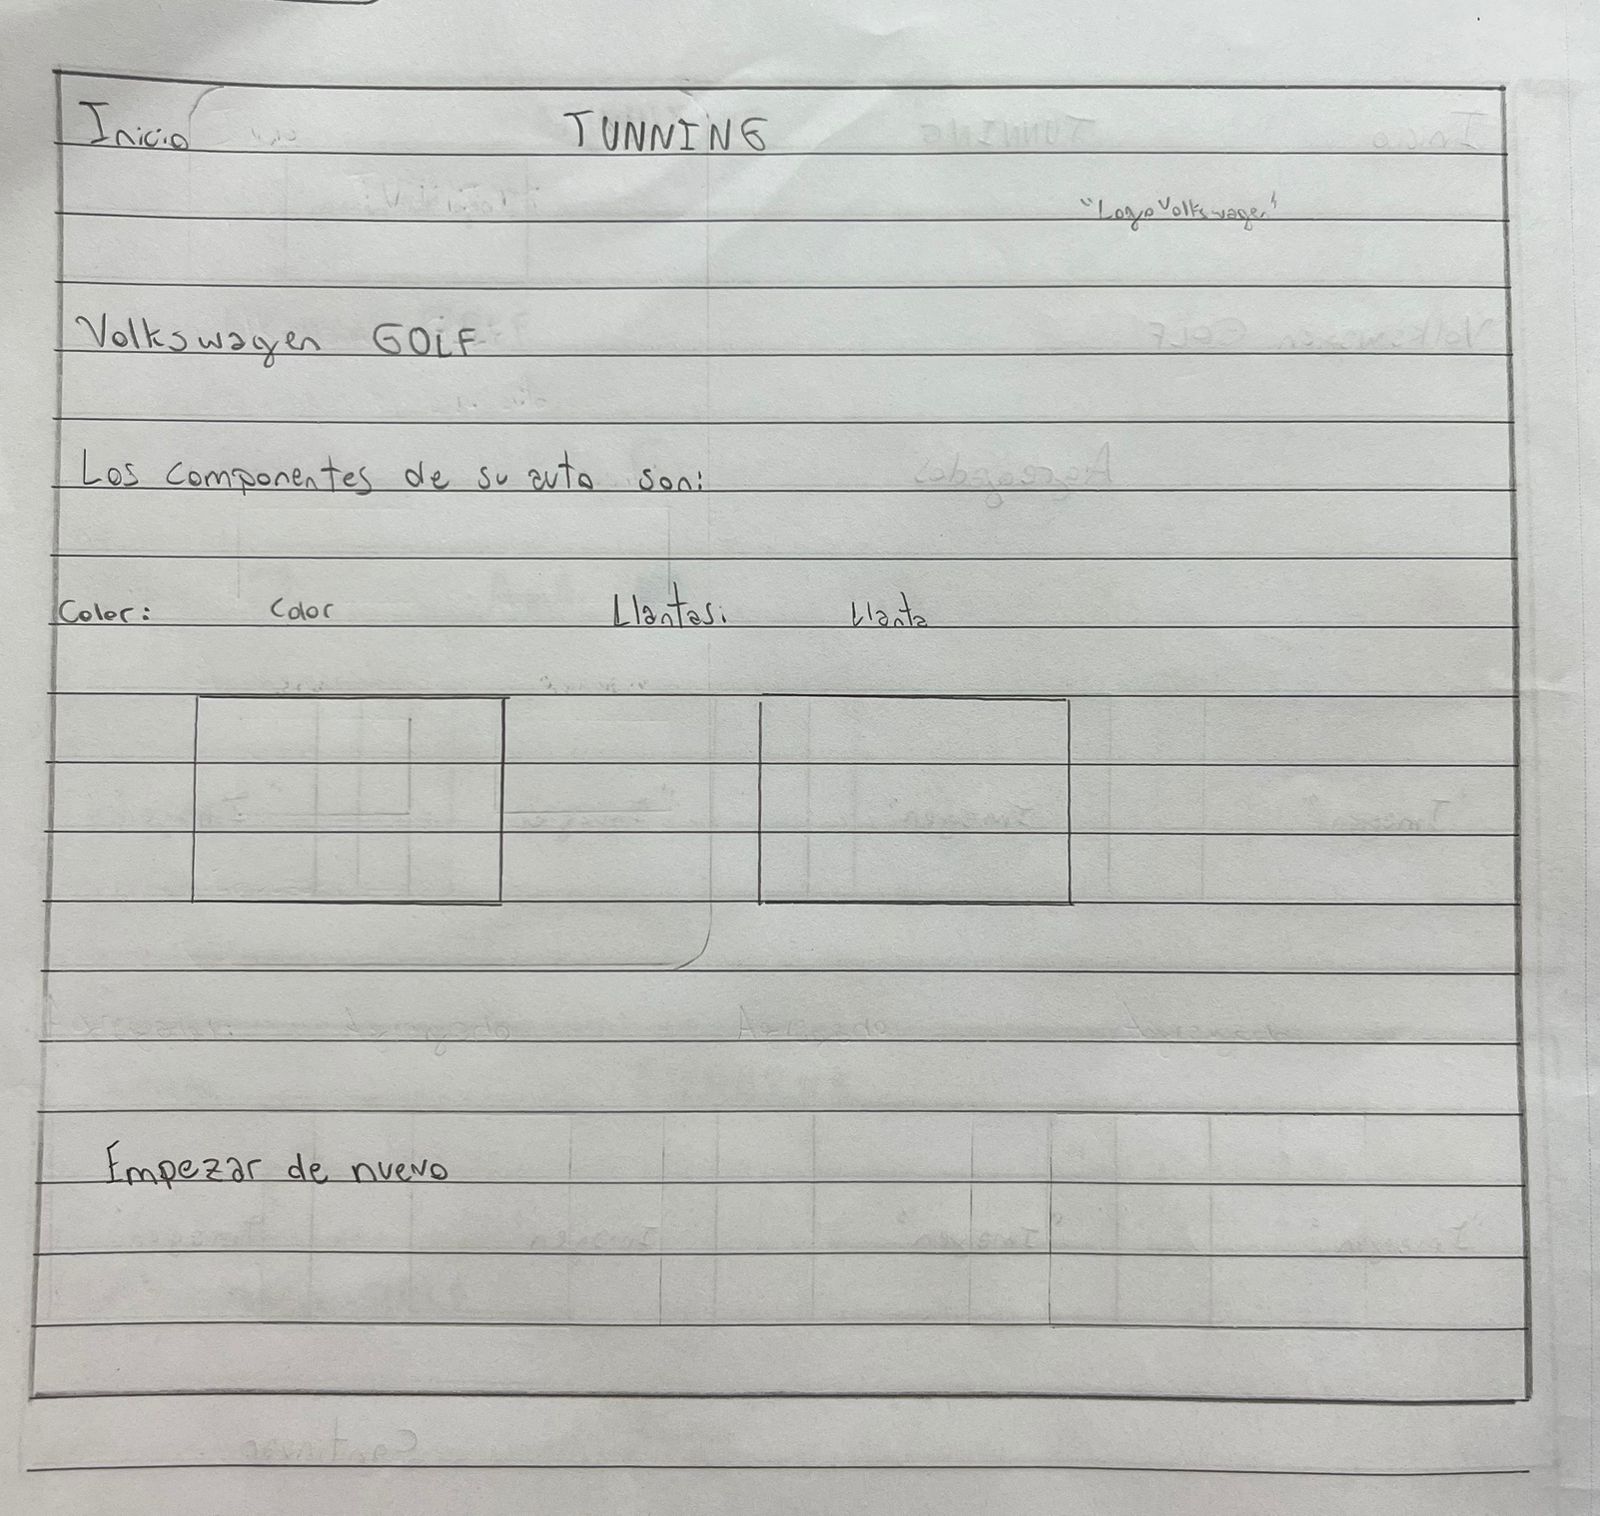 Inicio TUNNING
"Logo Volkswagen"
Volkswagen GOLF
Los componentes de su auto son:
Color: Color Llantas: Llanta
Empezar de nuevo